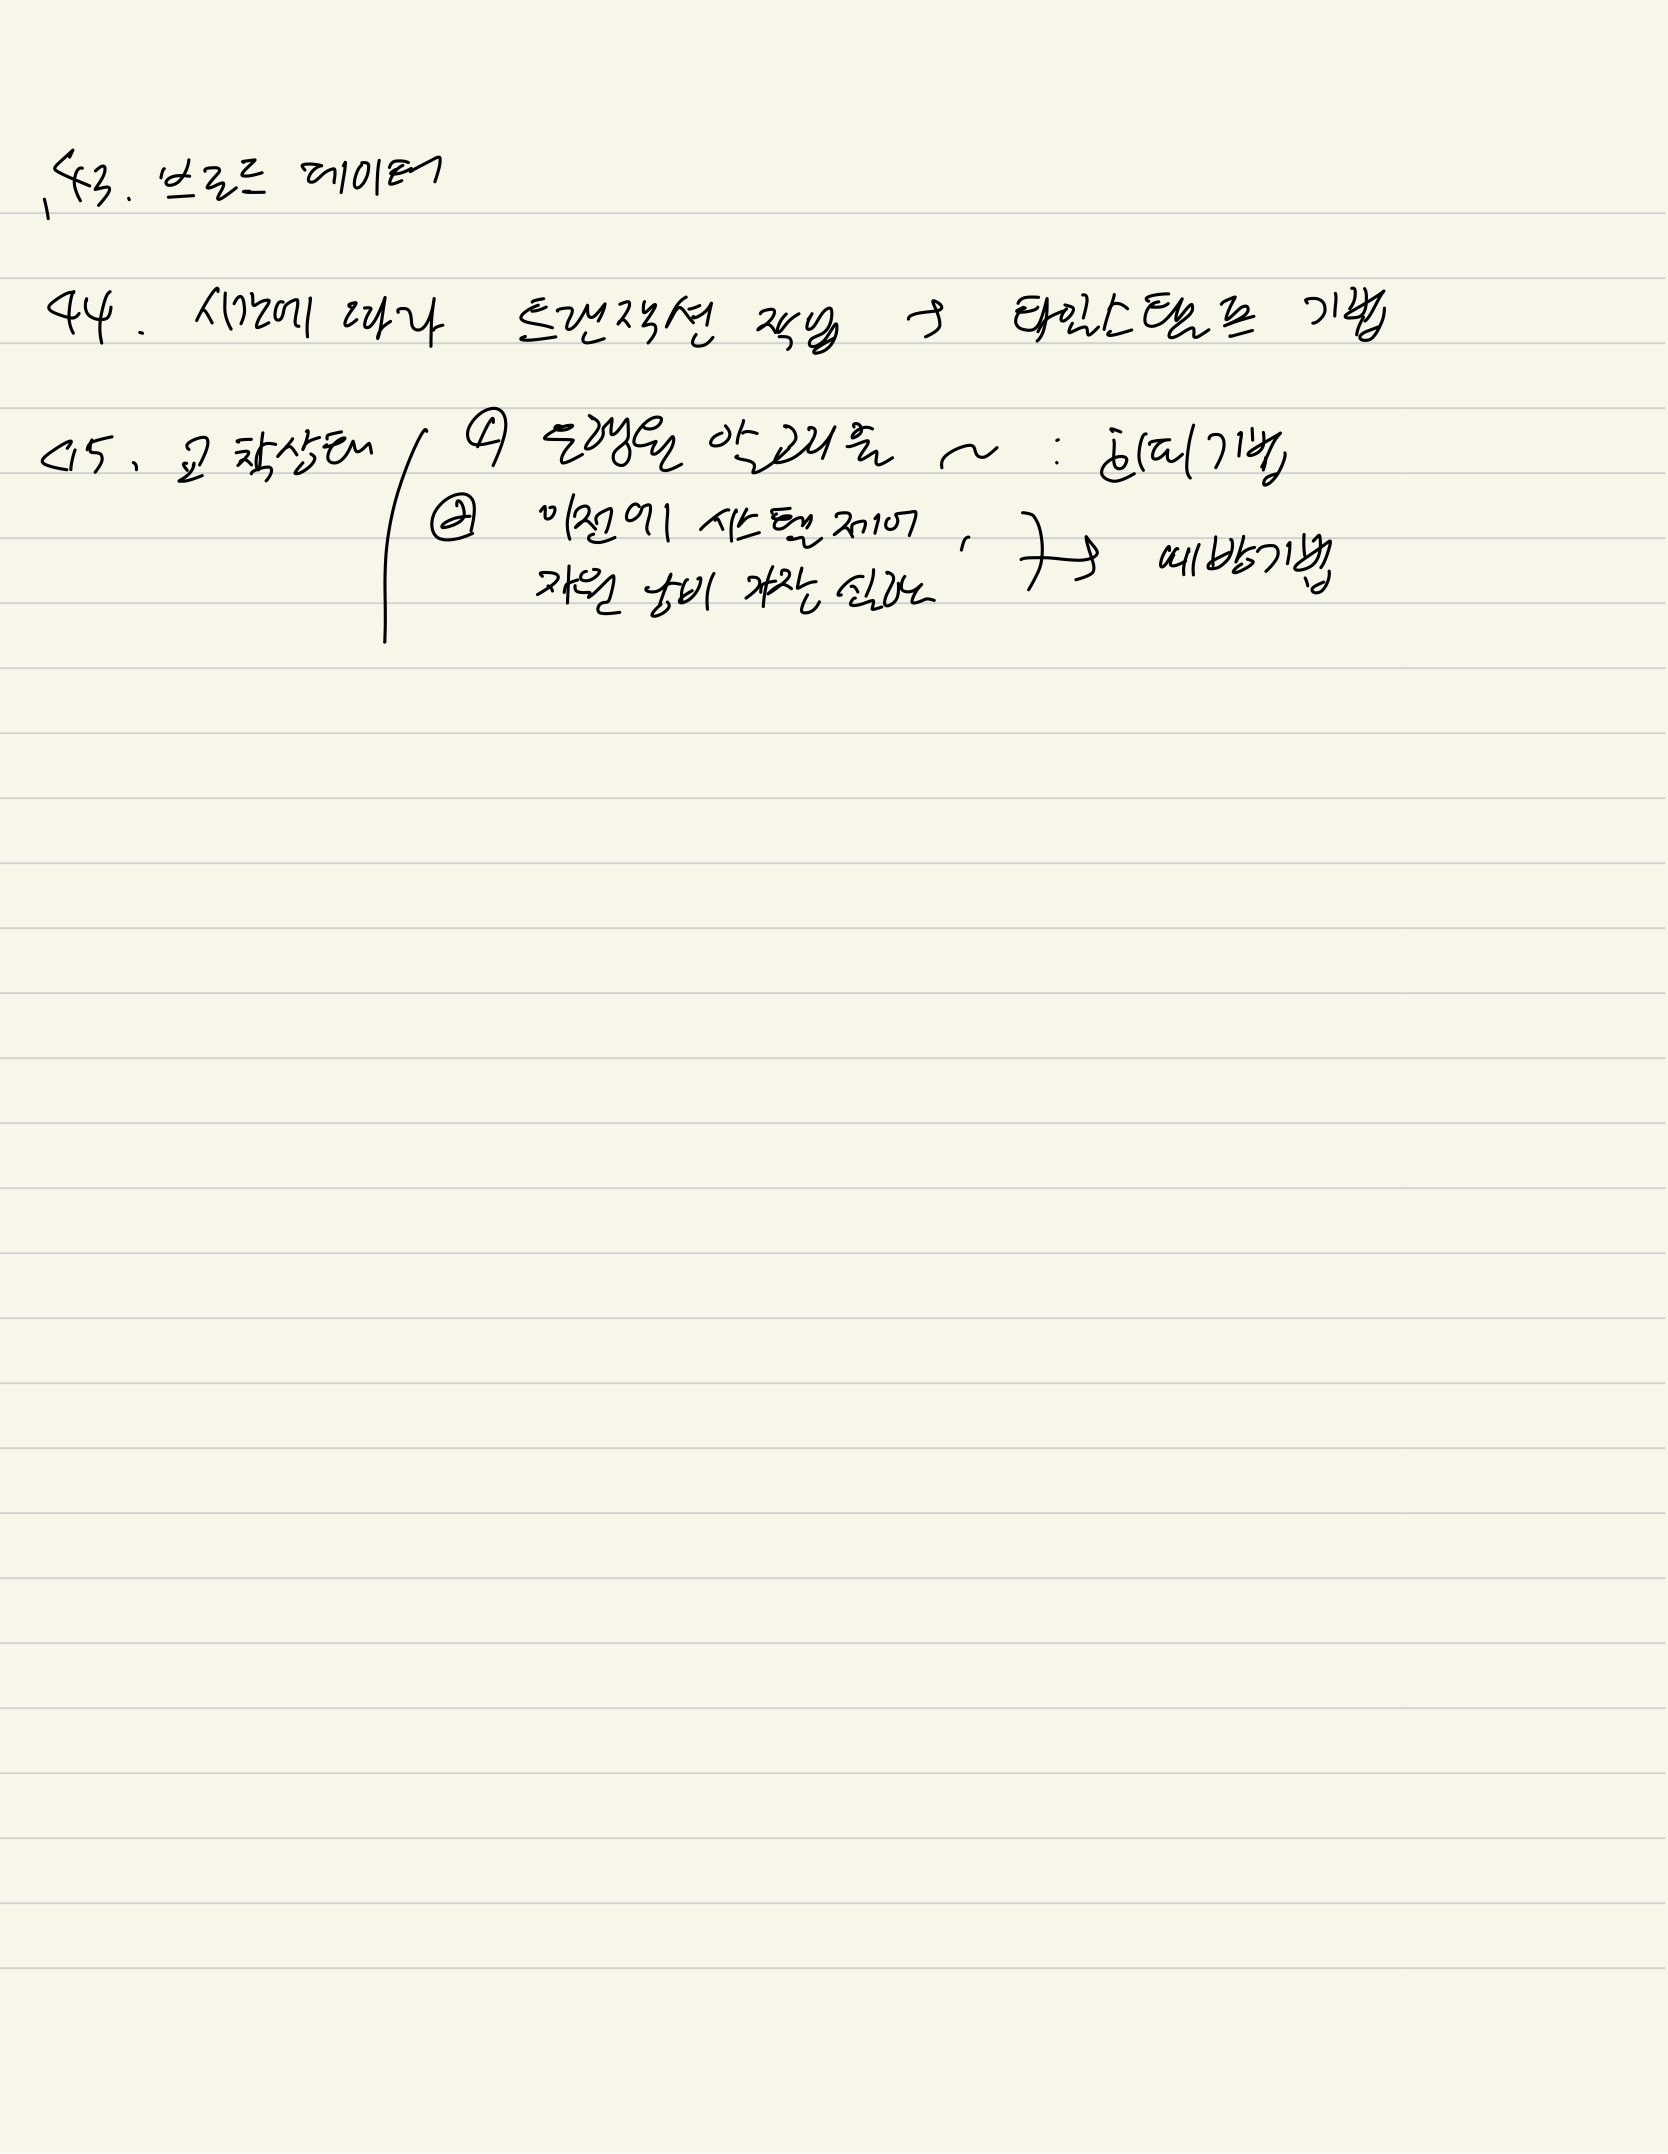 43. 브로드 데이터
44. 시간에 따라 트랜잭션 작업 → 타임스탬프 기법
45. 교착상태 ① 은행원 알고리즘 ~ : 회피기법
② 이전에 시스템 제어,
자원 낭비 가장 심함 } → 예방기법